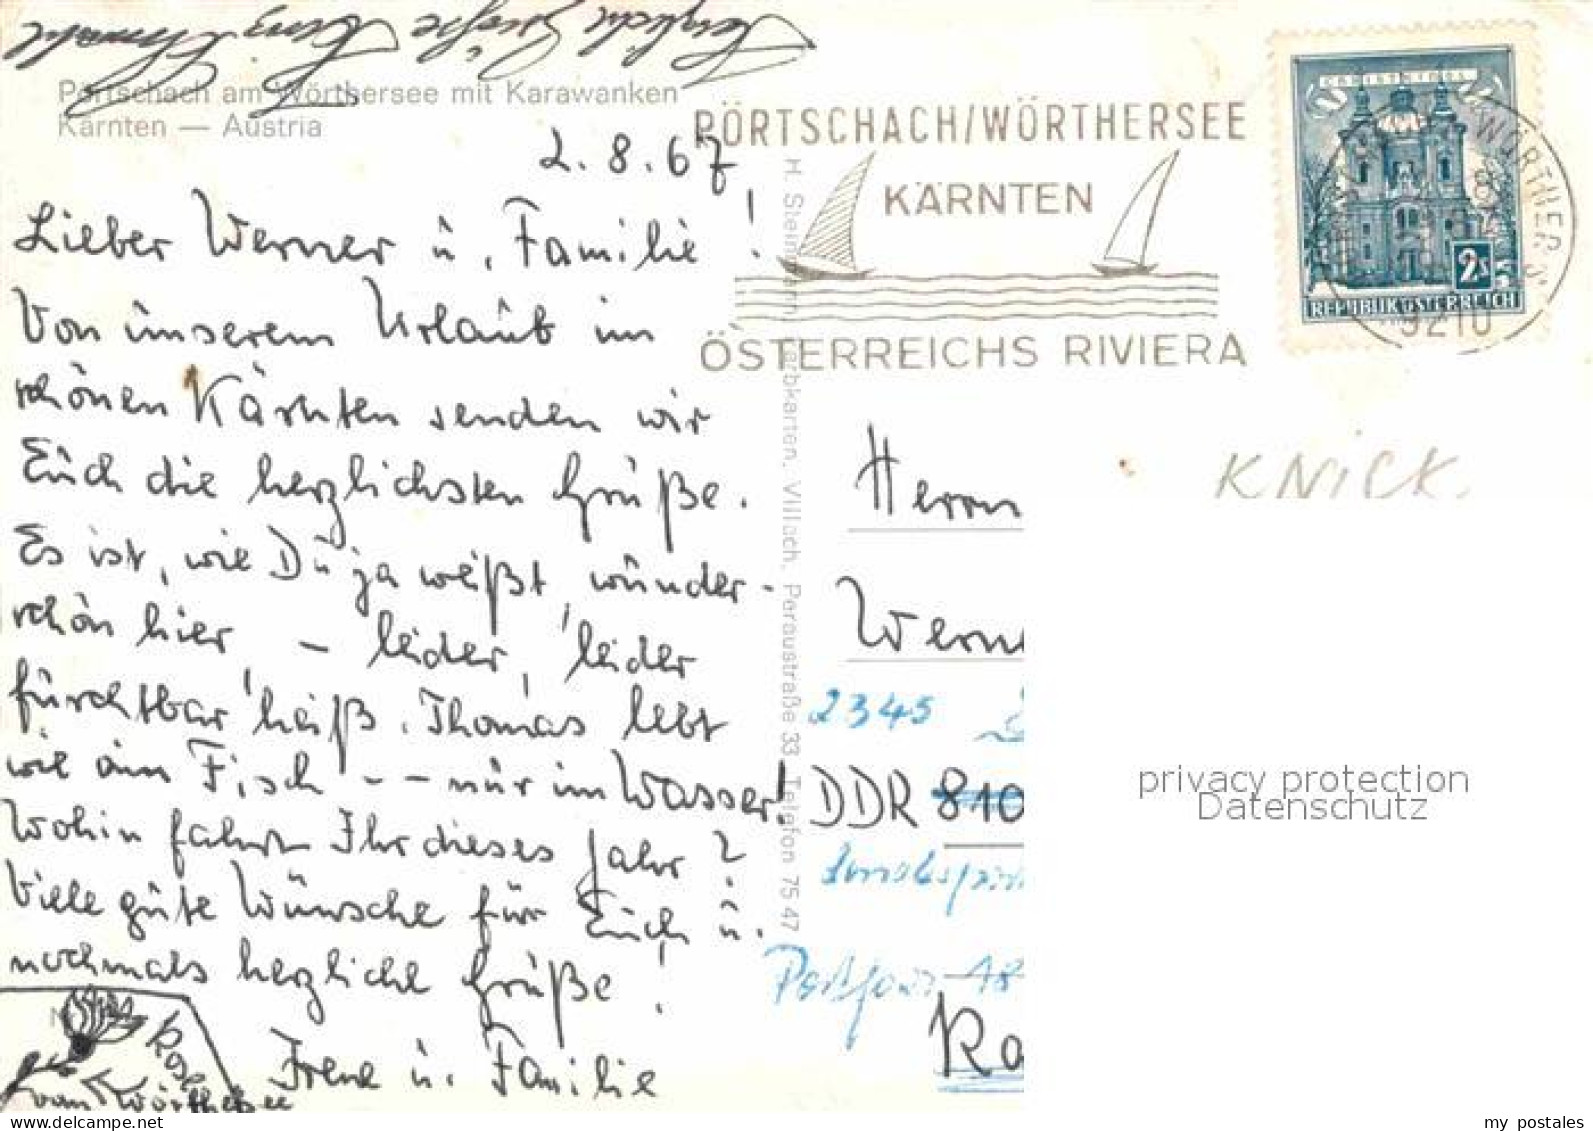 Herzliche Grüße
Pörtschach am Wörthersee mit Karawanken
Kärnten — Austria
2.8.67
Lieber Werner u. Familie!
Von unserem Urlaub im
schönen Kärnten senden wir
Euch die herzlichsten Grüße.
Es ist, wie Du ja weißt, wunder-
schön hier – leider, leider
furchtbar heiß. Thomas lebt
wie ein Fisch – – nur im Wasser!
Wohin fahrt Ihr dieses Jahr?
Viele gute Wünsche für Euch u.
nochmals herzliche Grüße!
Irene u. Familie
vom Wörthersee
H. Steinhart, Farbkarten, Villach, Peraustraße 33, Telefon 75 47
PÖRTSCHACH/WÖRTHERSEE
KÄRNTEN
ÖSTERREICHS RIVIERA
WÖRTHER
9210
CHRISTKINDL
2S
REPUBLIK ÖSTERREICH
KNICK.
Herrn
Wern
2345
DDR 810
18
Ra
privacy protection
Datenschutz
www.delcampe.net
my_postales